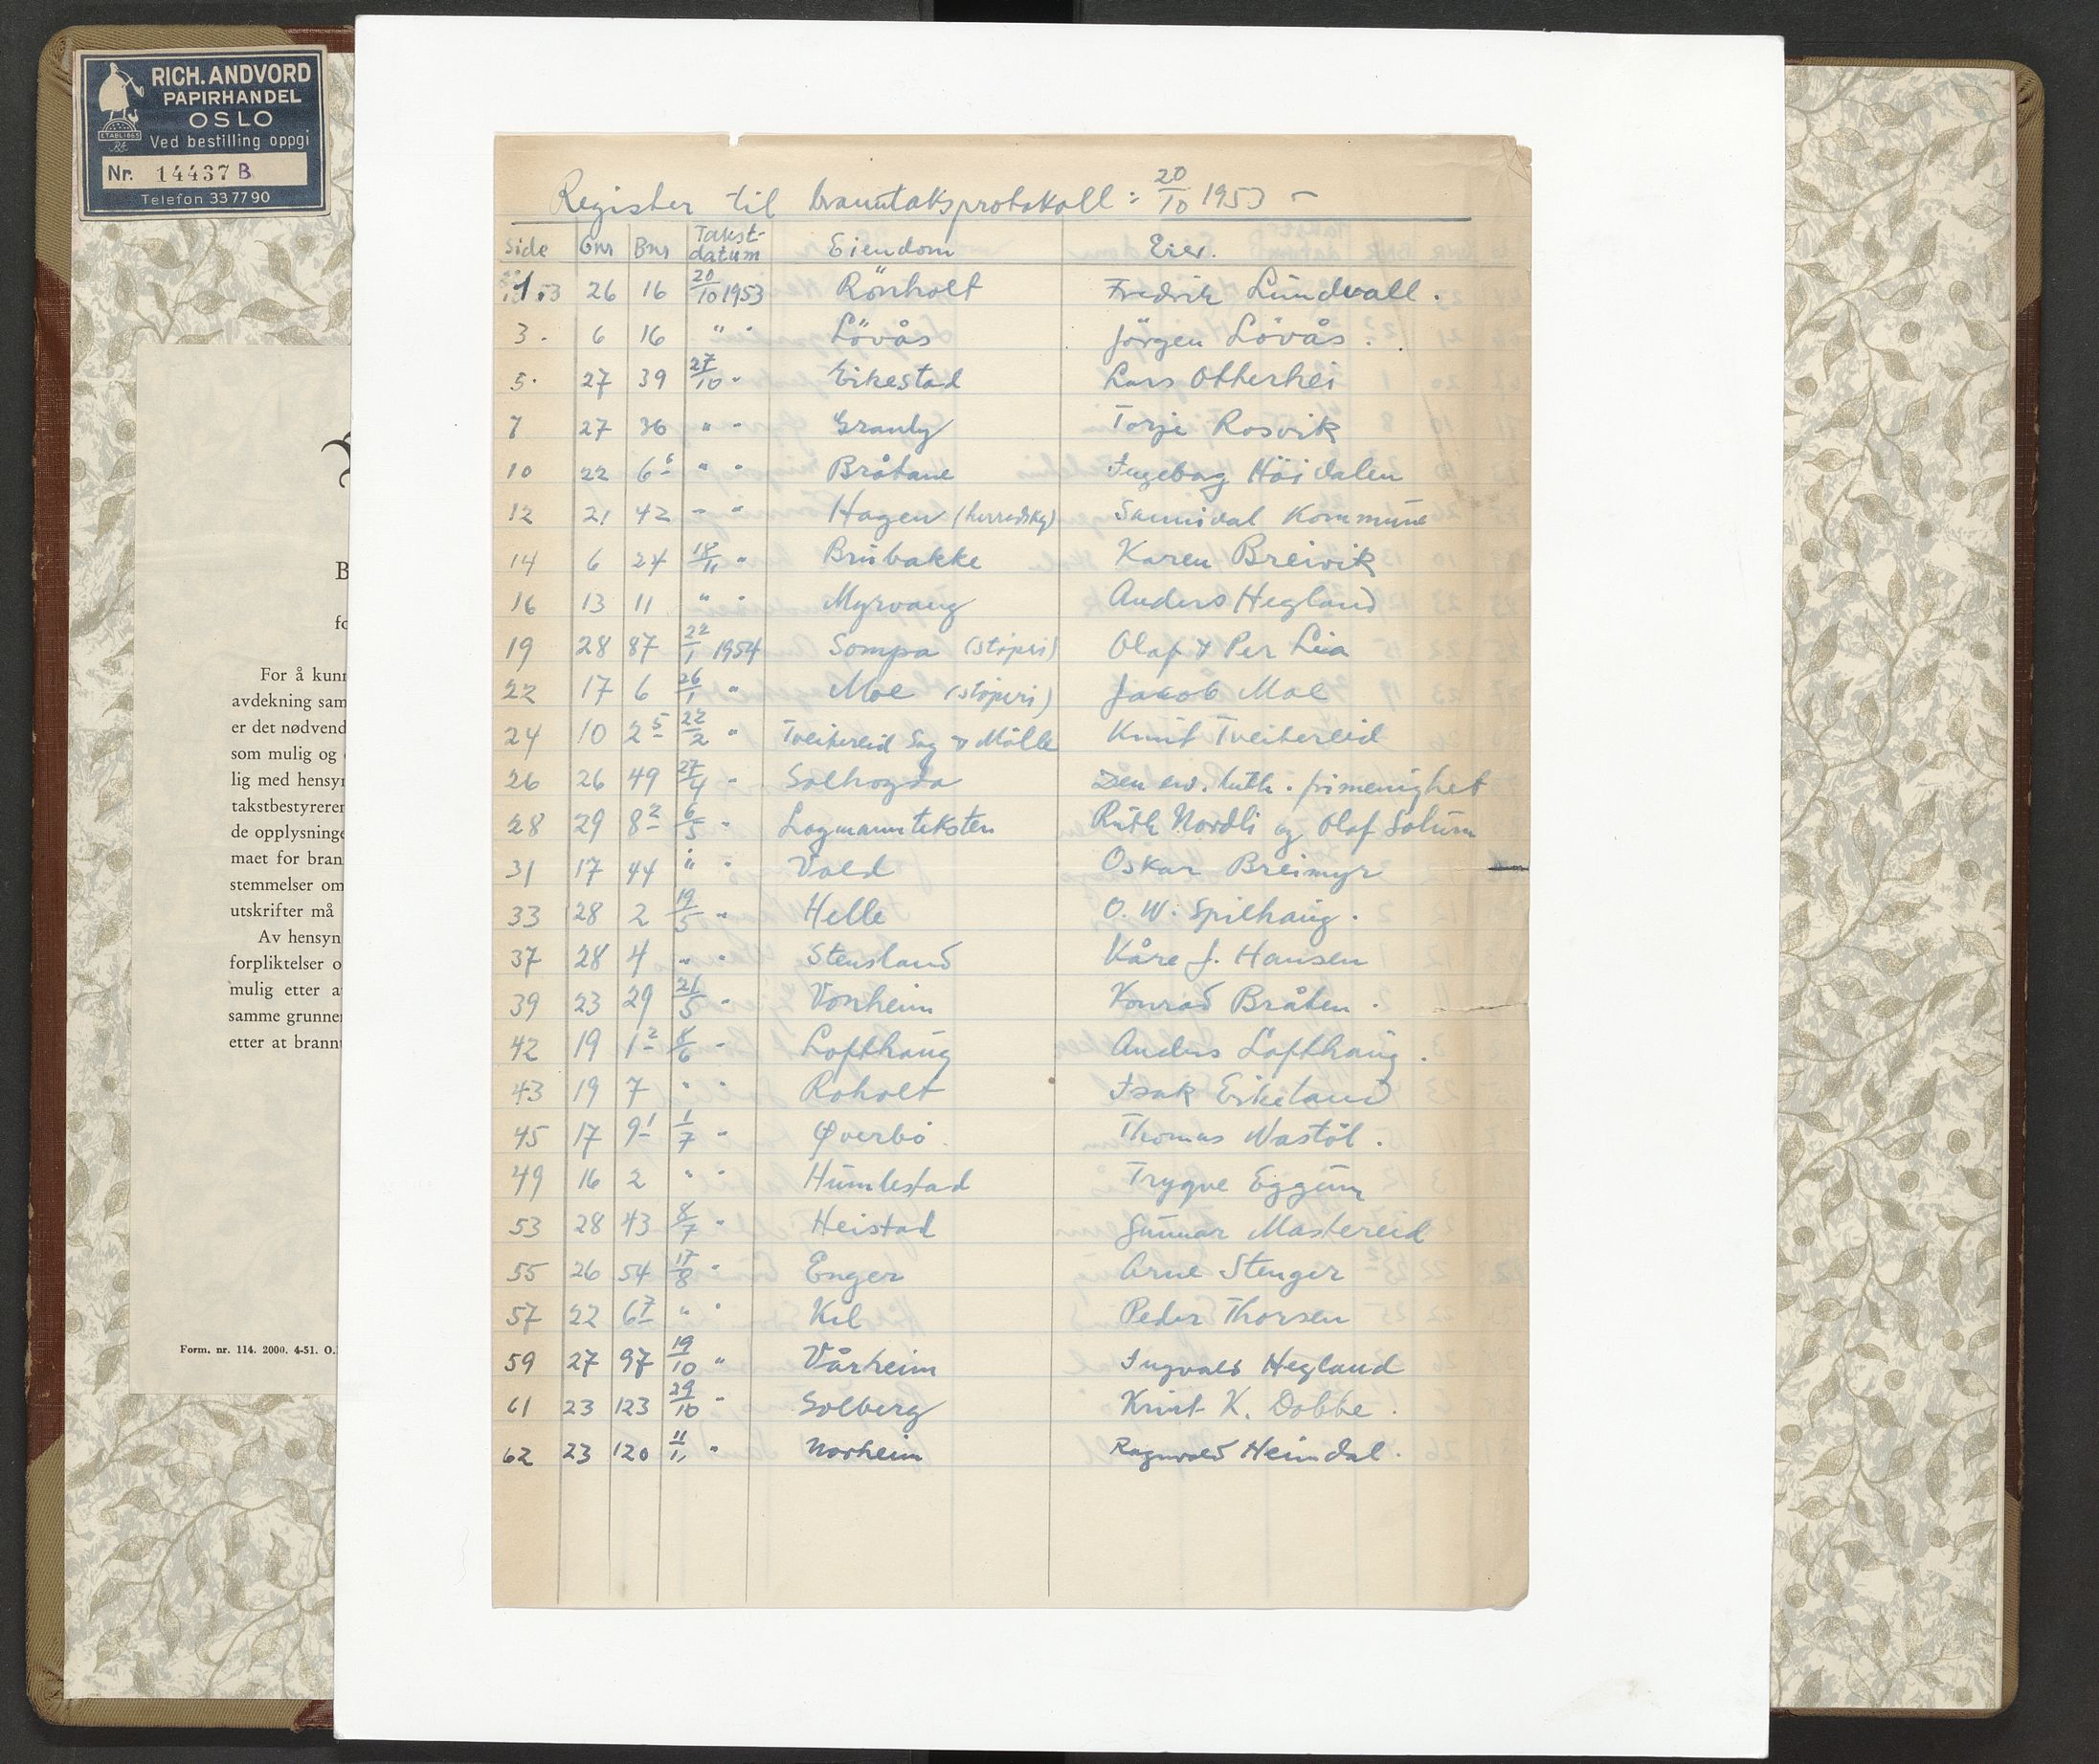 RICH. ANDVORD
PAPIRHANDEL
OSLO
ETABL. 1865
Ved bestilling oppgi
Nr. 14437 B
Telefon 337790
B
fo
For å kunn
avdekning sam
er det nødvend
som mulig og
lig med hensyn
takstbestyrerer
de opplysninge
maet for bran
stemmelser om
utskrifter må
Av hensyn
forpliktelser o
mulig etter a
samme grunne
etter at brannt
Form. nr. 114. 2000. 4-51. O.
Register til branntakstprotokoll: 20/10 1953 –
Side Gnr Bnr Takst-datum Eiendom Eier.
1. 26 16 20/10 1953 Rönholt Fredrik Lundvall.
3. 6 16 " " Lövås Jörgen Lövås.
5. 27 39 27/10 " Eikestad Lars Otterhei
7 27 36 " " Granly Torje Rosvik
10 22 6⁶ " " Bråtane Ingebog Höidalen
12 21 42 " " Hagen (herredskg) Sannidal Kommune
14 6 24 18/11 " Brubakke Karen Breivik
16 13 11 " " Myrvang Anders Hegland
19 28 87 22/1 1954 Sompa (støperi) Olaf & Per Lia
22 17 6 26/1 " Moe (støperi) Jakob Moe
24 10 2⁵ 22/2 " Tveitereid Sag & Mölle Knut Tveitereid
26 26 49 27/4 " Solhogda Den ev. luth. frimenighet
28 29 8² 6/5 " Lagmannteksten Ruth Nordli og Olaf Solum
31 17 44 " " Vold Oskar Breimyr
33 28 2 19/5 " Helle O. W. Spilhaug.
37 28 4 " " Stensland Kåre J. Hansen
39 23 29 21/5 " Vonheim Konrad Bråten.
42 19 1² 8/6 " Lofthaug Anders Lofthaug.
43 19 7 " " Roholt Isak Eikeland
45 17 9¹ 1/7 " Øverbö Thomas Wastöl.
49 16 2 " " Humlestad Trygve Eggum
53 28 43 8/7 " Heistad Gunnar Mastereid
55 26 54 17/8 " Enger Arne Stenger
57 22 6⁷ " " Kil Peder Thorsen
59 27 97 19/10 " Vårheim Ingvald Hegland
61 23 123 29/10 " Solberg Knut K. Dobbe.
62 23 120 11/11 " Norheim Ragnvald Heimdal.